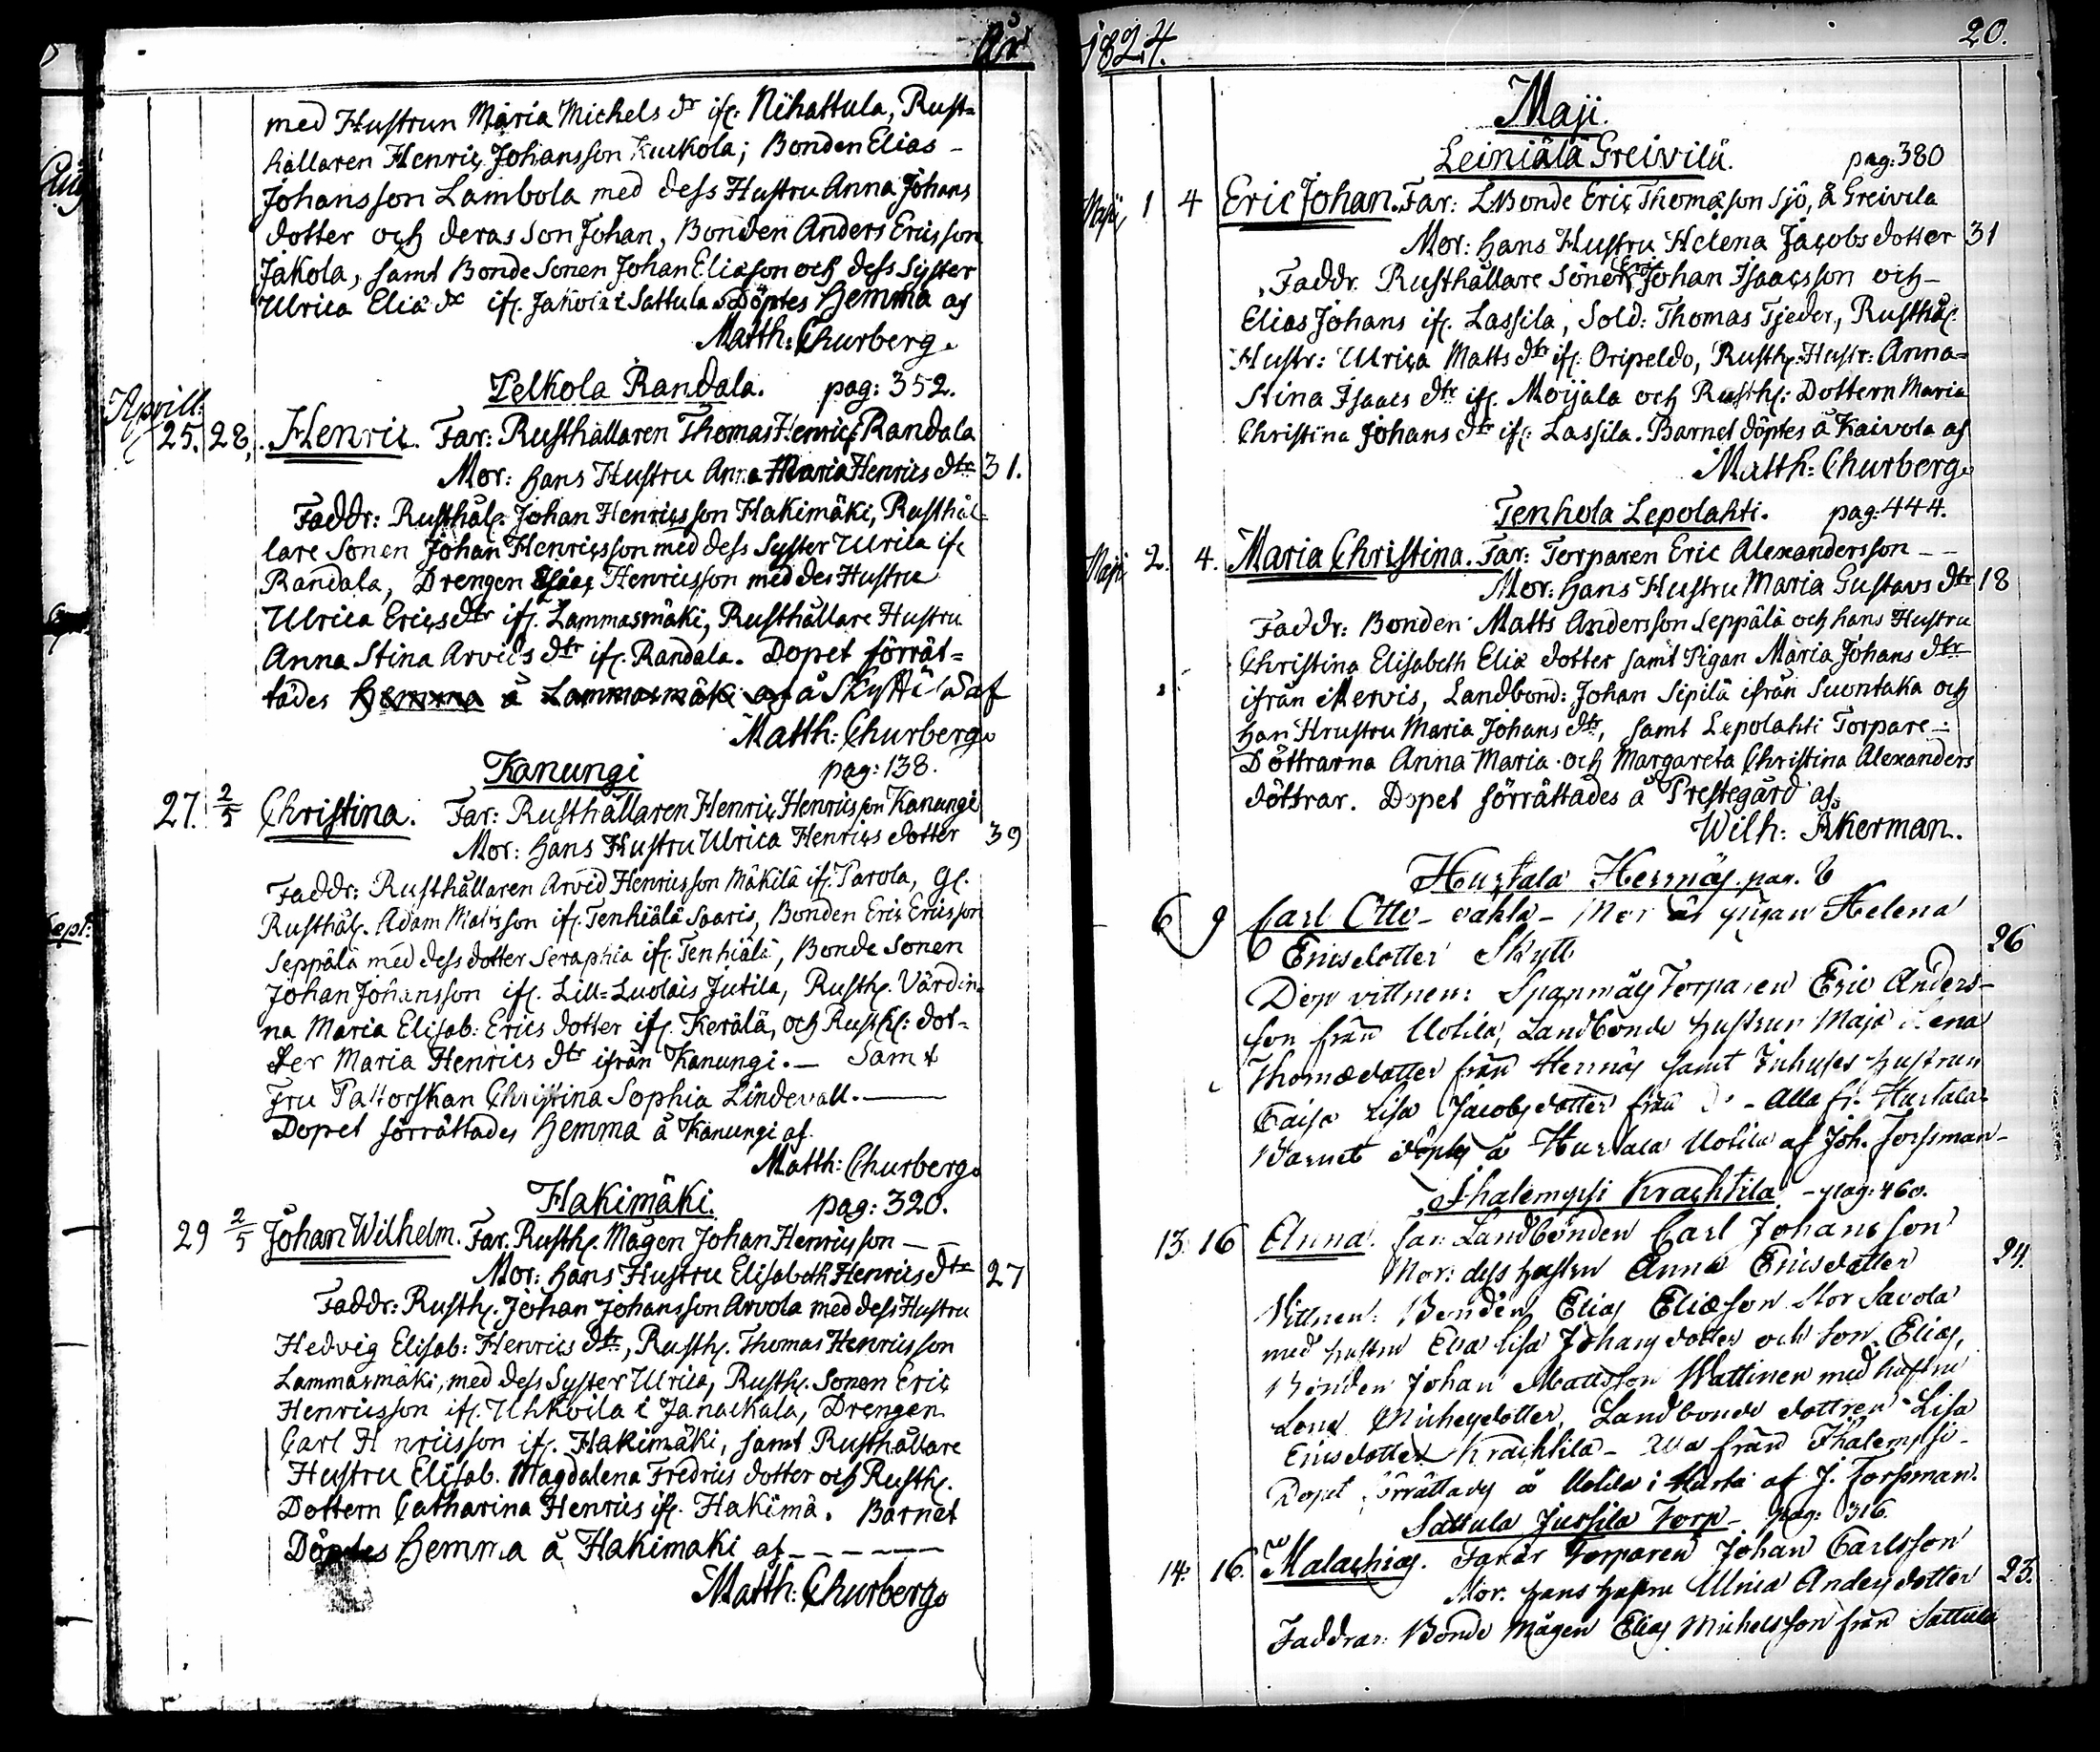 År
med Hustrun Maria Michels dr ifr. Nihattula, Rust=
hållaren Henric Johansson Kuckola; Bonden Elias -
Johansson Lambola med dess Hustru Anna Johans
dotter och deras Son Johan, Bonden Anders Ericsson
Jakola, samt Bonde Sonen Johan Eliason och dess Syster
Ulrica Eliæ dr ifr. Jakola i Sattula. Döptes hemma af
Matth: Churberg.
Pelkola Randala. pag: 352.
Aprill:
25. 28. Henric. Far: Rusthållaren Thomas Henrics Randala
Mor: hans Hustru Anna Maria Henrics dtr 31.
Faddr: Rusthål. Johan Henricsson Hakimäki, Rusthål
lare Sonen Johan Henricsson med dess Syster Ulrica ifr
Randala, Drengen Henricsson med des Hustru
Ulrica Ericsdtr ifr. Lammasmäki, Rusthållare Hustru
Anna Stina Arvids dtr ifr. Randala. Dopet förrät=
tades hemma å Lammasmäki af å Skyttälä af
Matth: Churberg.
Kanungi pag: 138.
27. 2/5 Christina. Far: Rusthållaren Henric Henricsson Kanungi
Mor: hans Hustru Ulrica Henrics dotter 39
Faddr: Rusthållaren Arvid Henricsson Mäkilä ifr. Parola, gl.
Rusthål. Adam Matsson ifr. Tenhiälä Saaris, Bonden Eric Ericsson
Seppälä med dess dotter Seraphia ifr. Tenhiälä, Bonde Sonen
Johan Johansson ifr. Lill=Luolais Jutila, Rusth. Värdin=
na Maria Elisab: Erics dotter ifr. Kerälä, och Rusth: dot=
ter Maria Henrics dtr ifrån Kanungi. - Samt
Fru Pastorskan Christina Sophia Lindevall. -
Dopet förrättades hemma å Kanungi af
Matth: Churberg.
Hakimäki. pag: 320.
29 2/5 Johan Wilhelm. Far. Rusth. Mågen Johan Henricsson - -
Mor: hans Hustru Elisabeth Henrics dtr 27
Faddr: Rusth. Johan Johansson Arvola med dess Hustru
Hedvig Elisab: Henrics dtr, Rusth. Thomas Henricsson
Lammasmäki, med dess Syster Ulrica, Rusth. Sonen Eric
Henricsson ifr. Uhkoila i Janackala, Drengen
Carl Henricsson ifr. Hakimäki, samt Rusthållare
Hustru Elisab. Magdalena Fredrics dotter och Rusth.
Dottern Catharina Henrics ifr. Hakimä. Barnet
Döptes hemma å Hakimäki af - - - - - -
Matth: Churberg.
1824. 20.
Maji.
Leiniälä Greivilä. pag: 380
Maji 1 4 Eric Johan. Far: L.Bonde Eric Thomasson Sjö, å Greivila
Mor: hans Hustru Helena Jacobs dotter 31
Faddr. Rusthållare Sönern Eric Johan Isaacsson och -
Elias Johans ifr. Lassila, Sold: Thomas Tjeder, Rusthål.
Hustr: Ulrica Matts dtr ifr. Oripeldo, Rusth. Hustr: Anna=
Stina Isaacs dtr ifr. Moijala och Rusth: Dottern Maria
Christina Johans dtr ifr. Lassila. Barnet döptes å Kaivola af
Matth: Churberg.
Tenhola Lepolahti. pag: 444.
Maji 2. 4. Maria Christina. Far: Torparen Eric Alexandersson - -
Mor: hans Hustru Maria Gustavs dtr 18
Faddr: Bonden Matts Andersson Seppälä och hans Hustru
Christina Elisabeth Eliæ dotter samt Pigan Maria Johans dtr
ifrån Mervis, Landbond: Johan Sipilä ifrån Suontaka och
han Hrustru Maria Johans dtr, samt Lepolahti Torpare -
Döttrarna Anna Maria och Margareta Christina Alexanders
döttrar. Dopet förrättades å Prestegård af
Wilh: Åkerman.
Hurtala Hernäs pag. 8
6 9 Carl Otto - oäkta - Mor är pigan Helena
Ericsdotter Skytt 26
Dop vittnen: Spanmäs Torparen Eric Anders-
son från Uotila, Landbonde hustrun Maja Lena
Thomædotter från Hernäs samt Inhyses hustrun
Caisa Lisa Jacobsdotter från - Alla fr. Hurtala
Barnet döptes å Hurtala Uotila af Joh. Forssman -
Thalempsi Krachtila - pag: 460.
13. 16 Anna. far: Landbonden Carl Johansson
Mor: dess hustru Anna Ericsdotter 24.
Vittnen: Bonden Elias Eliæson Stor Savola
med hustru Eva Lisa Johansdotter och son Elias,
Bonden Johan Mattsson Wattinen med hustru
Lena Michelsdotter, Landbonde dottren Lisa
Ericsdotter Krachtila - Alla från Thalempsi -
Dopet förrättades å Uotila i Hurta af J. Forssman.
Sattula Jussila Torp - pag: 316.
14. 16. Malachias. Far är Torparen Johan Carlsson
Mor. hans hustru Ulrica Andersdotter 23.
Faddrar: Bonde Mågen Elias Michelsson från Sattula